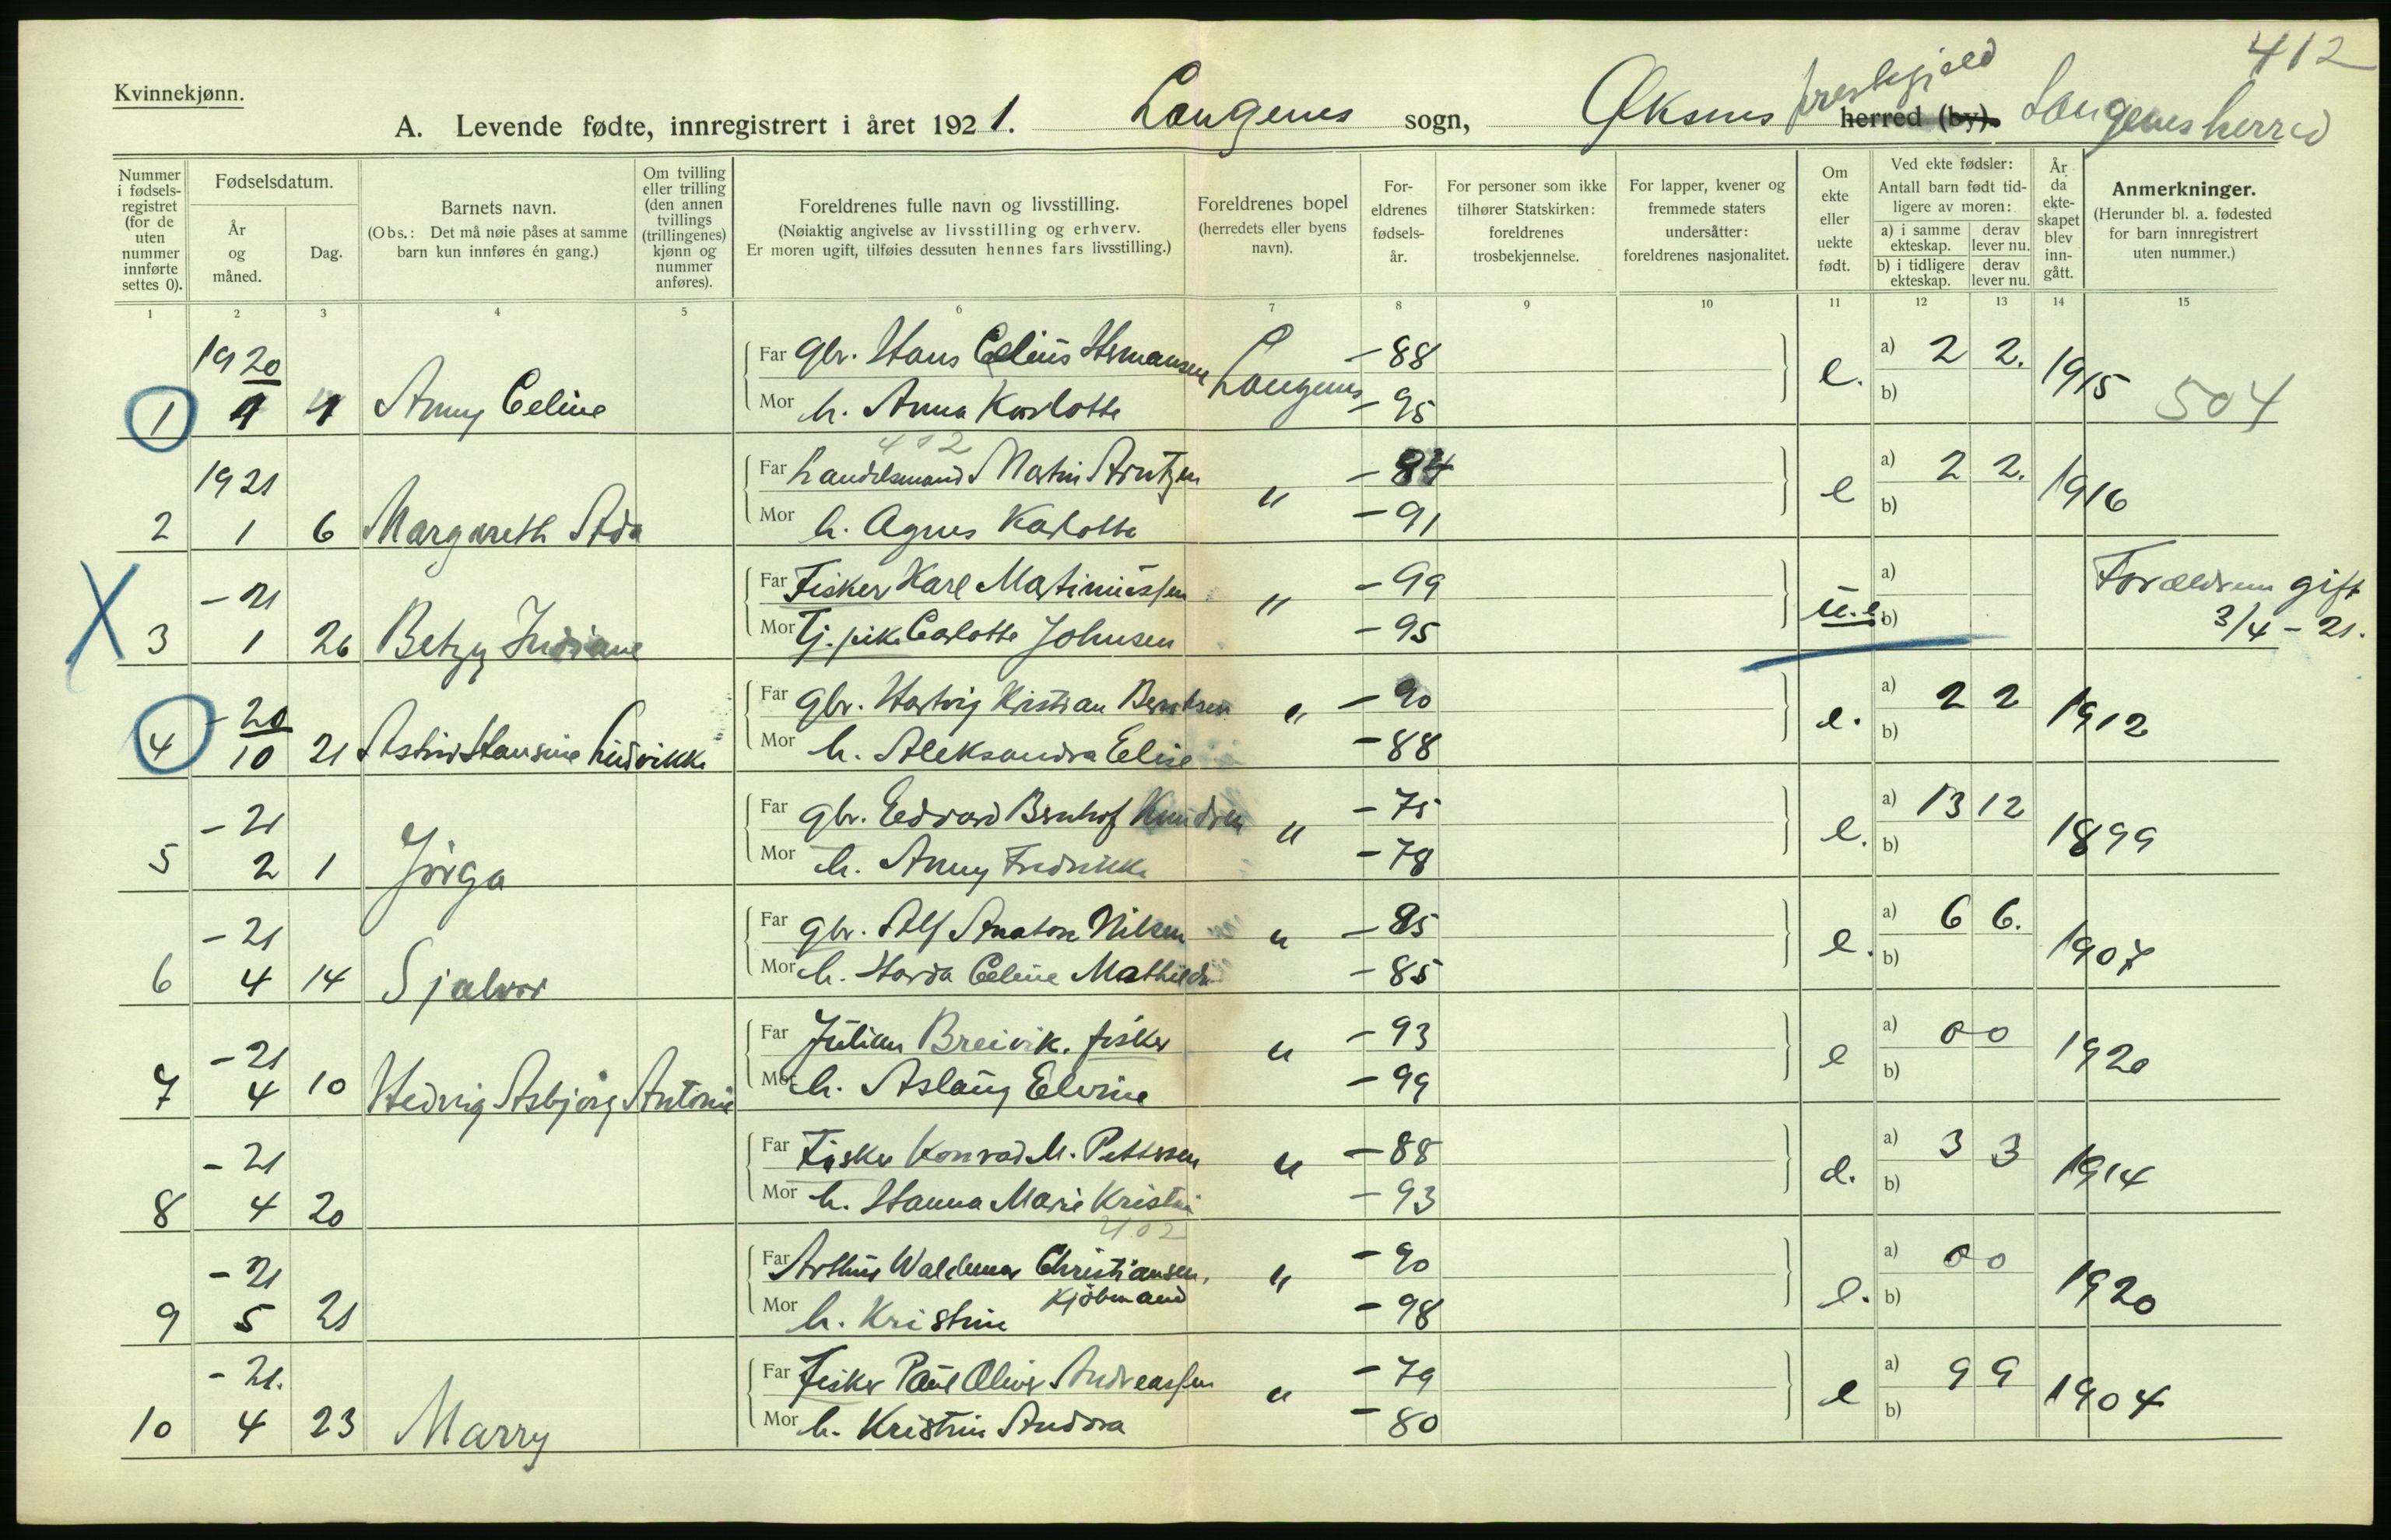 412
Kvinnekjønn.
A. Levende fødte, innregistrert i året 1921. Langenes sogn, Øksnes prestegjeld herred (by). Langenes herred
Nummer i fødsels- registret (for de uten nummer innførte settes 0).
Fødselsdatum.
År og måned.
Dag.
Barnets navn.
(Obs.: Det må nøie påses at samme barn kun innføres én gang.)
Om tvilling eller trilling (den annen tvillings (trillingenes) kjønn og nummer anføres).
Foreldrenes fulle navn og livsstilling.
(Nøiaktig angivelse av livsstilling og erhverv.
Er moren ugift, tilføies dessuten hennes fars livsstilling.)
Foreldrenes bopel
(herredets eller byens navn).
For- eldrenes fødsels- år.
For personer som ikke tilhører Statskirken: foreldrenes trosbekjennelse.
For lapper, kvener og fremmede staters undersåtter: foreldrenes nasjonalitet.
Om ekte eller uekte født.
Ved ekte fødsler:
Antall barn født tid- ligere av moren:
a) i samme ekteskap.
derav lever nu.
b) i tidligere ekteskap.
derav lever nu.
År da ekte- skapet blev inn- gått.
Anmerkninger.
(Herunder bl. a. fødested for barn innregistrert uten nummer.)
1 2 3 4 5 6 7 8 9 10 11 12 13 14 15
1920
Far gbr. Hans Celius Hermansen Langenes -88 e. a) 2 2. 1915 504
1 4 Anny Celine
Mor h. Anna Karlotte -95 b)
402
1921
Far handelsmand Martin Arntzen " -84 e a) 2 2. 1916
2 1 6 Margareth Ada
Mor h. Agnes Karlotte -91 b)
X
-21
Far Fisker Karl Martinussen " -99 u.e. a) Forældrene gift 3/4-21.
3 1 26 Betzy Indiane
Mor Tj. pike Carlotte Johnsen -95 b)
-20
Far gbr. Hartvig Kristian Berntsen " -90 e. a) 2 2 1912
4 10 21 Astrid Hansine Ludvikke
Mor h. Aleksandra Elise -88 b)
-21
Far gbr. Edvard Bernhof Knudsen " -75 e. a) 13 12 1899
5 2 1 Jørga
Mor h. Anny Fredrikke -78 b)
-21
Far gbr. Alf Anaton Nilsen " -85 e. a) 6 6. 1907
6 4 14 Sjalvor
Mor h. Harda Celine Mathilda -85 b)
-21
Far Julian Breivik. fisker " -93 e a) 0 0 1920
7 4 10 Hedvig Asbjørg Antonie
Mor h. Aslaug Elvine -99 b)
-21
Far Fisker Konrad M. Pettersen " -88 e. a) 3 3 1914
8 4 20
Mor h. Hanna Marie Kristin -93 b)
402
-21
Far Arthur Waldemar Christiansen, Kjøbmand " -90 e. a) 0 0 1920
9 5 21
Mor h. Kristine -98 b)
-21.
Far Fisker Paul Oliver Andreassen " -79 e a) 9 9 1904
10 4 23 Marry
Mor h. Kristine Andora -80 b)